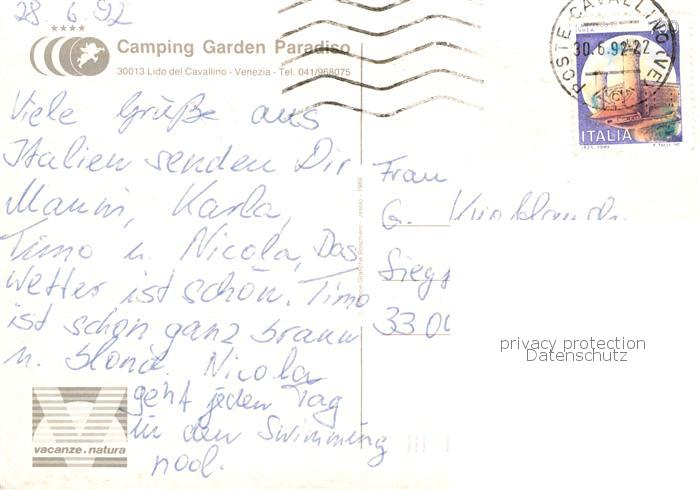 28. 6. 92
Camping Garden Paradiso
30013 Lido del Cavallino - Venezia - Tel. 041/968075
POSTE CAVALLINO (VE)
30.6.92-22
ITALIA
Viele Grüße aus
Italien senden Dir
Manni, Karla,
Timo u. Nicola, Das
Wetter ist schön. Timo
ist schon ganz braun
u. blond. Nicola
geht jeden Tag
in den Swimming
pool.
Frau
G.
Siegf
33 00
privacy protection
Datenschutz
vacanze natura